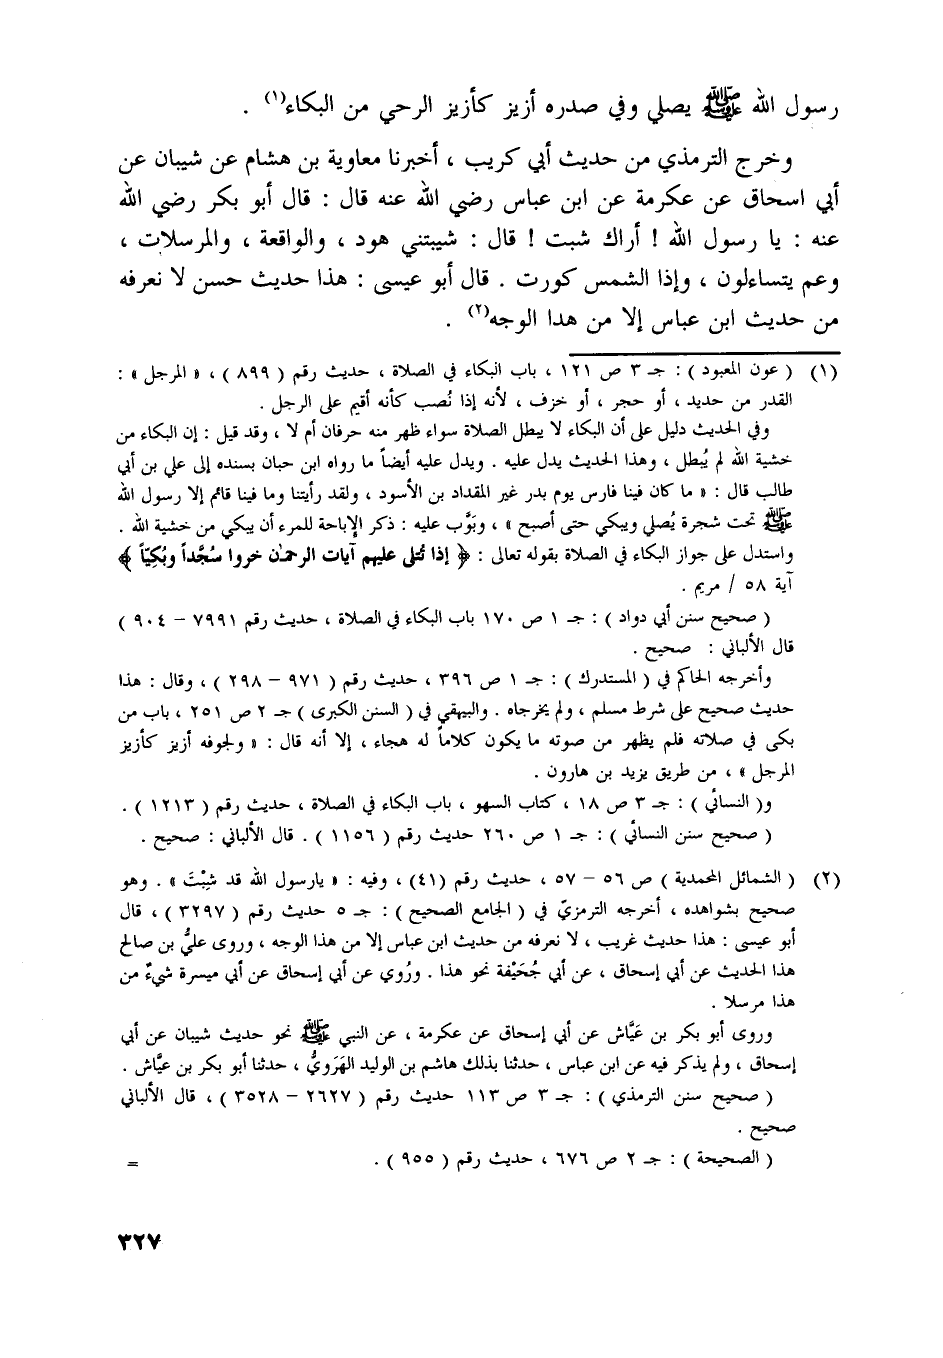 رسول الله ﷺ يصلي وفي صدره أزيز كأزيز الرحي من البكاء(١) .
وخرج الترمذي من حديث أبي كريب ، أخبرنا معاوية بن هشام عن شيبان عن
أبي اسحاق عن عكرمة عن ابن عباس رضي الله عنه قال : قال أبو بكر رضي الله
عنه : يا رسول الله ! أراك شبت ! قال : شيبتني هود ، والواقعة ، والمرسلات ،
وعم يتساءلون ، وإذا الشمس كورت . قال أبو عيسى : هذا حديث حسن لا نعرفه
من حديث ابن عباس إلا من هدا الوجه(٢) .
(١) ( عون المعبود ) : جـ ٣ ص ١٢١ ، باب البكاء في الصلاة ، حديث رقم ( ٨٩٩ ) ، « المرجل » :
القدر من حديد ، أو حجر ، أو خزف ، لأنه إذا نُصب كأنه أقيم على الرجل .
وفي الحديث دليل على أن البكاء لا يبطل الصلاة سواء ظهر منه حرفان أم لا ، وقد قيل : إن البكاء من
خشية الله لم يُبطل ، وهذا الحديث يدل عليه . ويدل عليه أيضاً ما رواه ابن حبان بسنده إلى علي بن أبي
طالب قال : « ما كان فينا فارس يوم بدر غير المقداد بن الأسود ، ولقد رأيتنا وما فينا قائم إلا رسول الله
ﷺ تحت شجرة يُصلي ويبكي حتى أصبح » ، وبَوَّب عليه : ذكر الإباحة للمرء أن يبكي من خشية الله .
واستدل على جواز البكاء في الصلاة بقوله تعالى : ﴿ إذا تُتلى عليهم آيات الرحمٰن خروا سُجَّداً وبُكِيّاً ﴾
آية ٥٨ / مريم .
( صحيح سنن أبي دواد ) : جـ ١ ص ١٧٠ باب البكاء في الصلاة ، حديث رقم ٧٩٩١ – ٩٠٤ )
قال الألباني : صحيح .
وأخرجه الحاكم في ( المستدرك ) : جـ ١ ص ٣٩٦ ، حديث رقم ( ٩٧١ – ٢٩٨ ) ، وقال : هذا
حديث صحيح على شرط مسلم ، ولم يخرجاه . والبيهقي في ( السنن الكبرى ) جـ ٢ ص ٢٥١ ، باب من
بكى في صلاته فلم يظهر من صوته ما يكون كلاماً له هجاء ، إلا أنه قال : « ولجوفه أزيز كأزيز
المرجل » ، من طريق يزيد بن هارون .
و( النسائي ) : جـ ٣ ص ١٨ ، كتاب السهو ، باب البكاء في الصلاة ، حديث رقم ( ١٢١٣ ) .
( صحيح سنن النسائي ) : جـ ١ ص ٢٦٠ حديث رقم ( ١١٥٦ ) . قال الألباني : صحيح .
(٢) ( الشمائل المحمدية ) ص ٥٦ – ٥٧ ، حديث رقم (٤١) ، وفيه : « يارسول الله قد شِبْتَ » . وهو
صحيح بشواهده ، أخرجه الترمزيّ في ( الجامع الصحيح ) : جـ ٥ حديث رقم ( ٣٢٩٧ ) ، قال
أبو عيسى : هذا حديث غريب ، لا نعرفه من حديث ابن عباس إلا من هذا الوجه ، وروى عليُّ بن صالح
هذا الحديث عن أبي إسحاق ، عن أبي جُحَيْفة نحو هذا . ورُوي عن أبي إسحاق عن أبي ميسرة شيءٌ من
هذا مرسلا .
وروى أبو بكر بن عَيَّاش عن أبي إسحاق عن عكرمة ، عن النبي ﷺ نحو حديث شيبان عن أبي
إسحاق ، ولم يذكر فيه عن ابن عباس ، حدثنا بذلك هاشم بن الوليد الهَرَويُّ ، حدثنا أبو بكر بن عيَّاش .
( صحيح سنن الترمذي ) : جـ ٣ ص ١١٣ حديث رقم ( ٢٦٢٧ – ٣٥٢٨ ) ، قال الألباني
صحيح .
( الصحيحة ) : جـ ٢ ص ٦٧٦ ، حديث رقم ( ٩٥٥ ) . =
٣٢٧